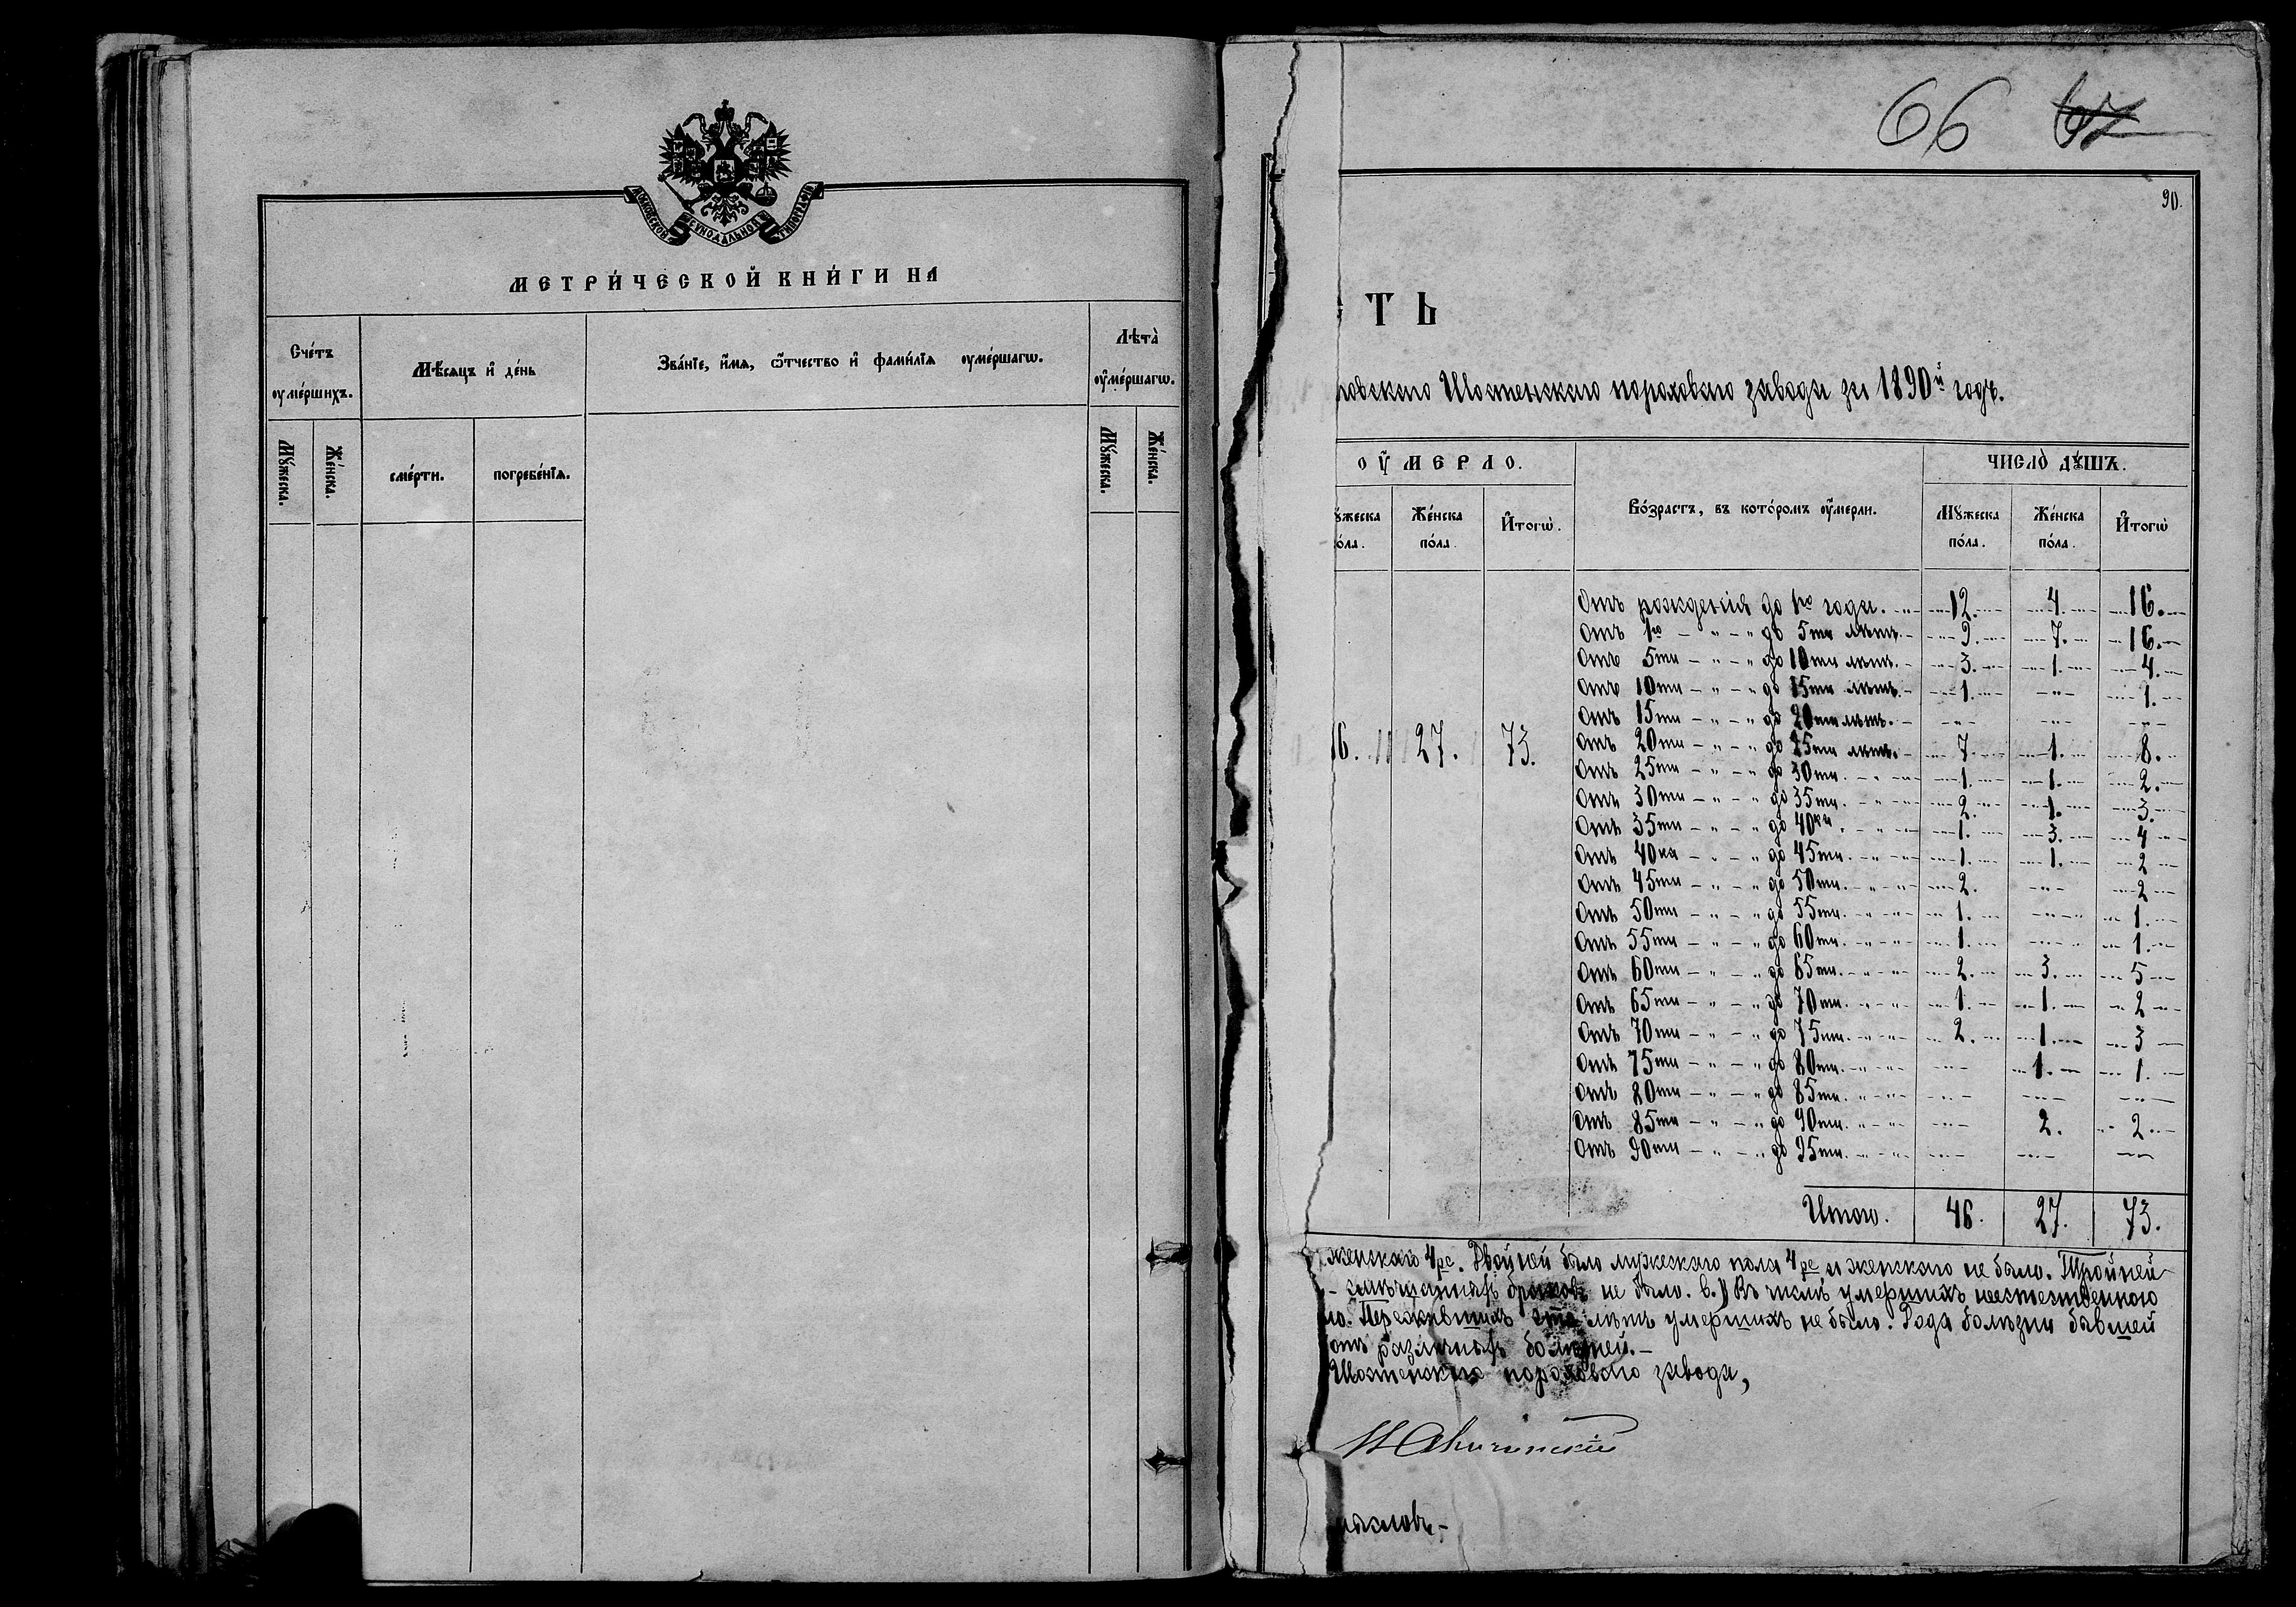 МОСКОВСКОЙ СѴНОДАЛЬНОЙ ТИПОГРАФІИ
МЕТРИ́ЧЕСКОЙ КНИ́ГИ НА
Сче́тъ ᲂуме́ршихъ.
Мѣ́сяцъ и҆ де́нь
Зва́нїе, и҆́мѧ, ѻ҆́тчество и҆ фами́лїѧ ᲂуме́ршагѡ.
Лѣта̀ ᲂу҆ме́ршагѡ.
Мꙋ́жеска.
Же́нска.
сме́рти.
погребе́нїѧ.
Мꙋ́жеска.
Же́нска.
66 67
90.
ТЬ
Шостенскаго пороховаго завода за 1890й годъ.
ОУ҆МЕРЛО.
ЧИСЛО̀ ДꙊ́ШЪ.
ꙋ́жеска о́ла.
Же́нска по́ла.
И҆тогѡ̀.
Во́зрастъ, въ кото́ромъ ᲂу҆́мерли.
Мꙋ́жеска по́ла.
Же́нска по́ла.
И҆тогѡ̀
6. 27. 73.
Отъ рожденія до 1го года. 12. 4. 16.
Отъ 1го - " - " до 5ти лѣтъ. 9. 7. 16.
Отъ 5ти - " - " до 10ти лѣтъ. 3. 1. 4.
Отъ 10ти - " - " до 15ти лѣтъ. 1. - " - 1.
Отъ 15ти - " - " до 20ти лѣтъ. - " - - " - - " -
Отъ 20ти - " - " до 25ти лѣтъ. 7. 1. 8.
Отъ 25ти - " - " до 30ти. 1. 1. 2.
Отъ 30ти - " - " до 35ти. 2. 1. 3.
Отъ 35ти - " - " до 40ка. 1. 3. 4
Отъ 40ка - " - " до 45ти. 1. 1. 2
Отъ 45ти - " - " до 50ти. 2. - " - 2
Отъ 50ти - " - " до 55ти. 1. - " - 1.
Отъ 55ти - " - " до 60ти. 1. - " - 1.
Отъ 60ти - " - " до 65ти. 2. 3. 5
Отъ 65ти - " - " до 70ти. 1. 1. 2
Отъ 70ти - " - " до 75ти. 2. 1. 3
Отъ 75ти - " - " до 80ти. - " - 1. 1.
Отъ 80ти - " - " до 85ти. - " - - " - - " -
Отъ 85ти - " - " до 90ти. - " - 2. 2.
Отъ 90ти - " - " до 95ти. - " - - " - - " -
Итого. 46. 27. 73.
женскаго 4ре. Двойней было мужескаго пола 4ре, и женскаго не было. Тройней
- смѣшанныхъ браковъ не было. в.) Въ числѣ умершихъ неестественною
ло. Пережившихъ сто лѣтъ умершихъ не было. Рода болѣзни бывшей
отъ различныхъ болѣзней.-
Шостенскаго пороховаго завода,